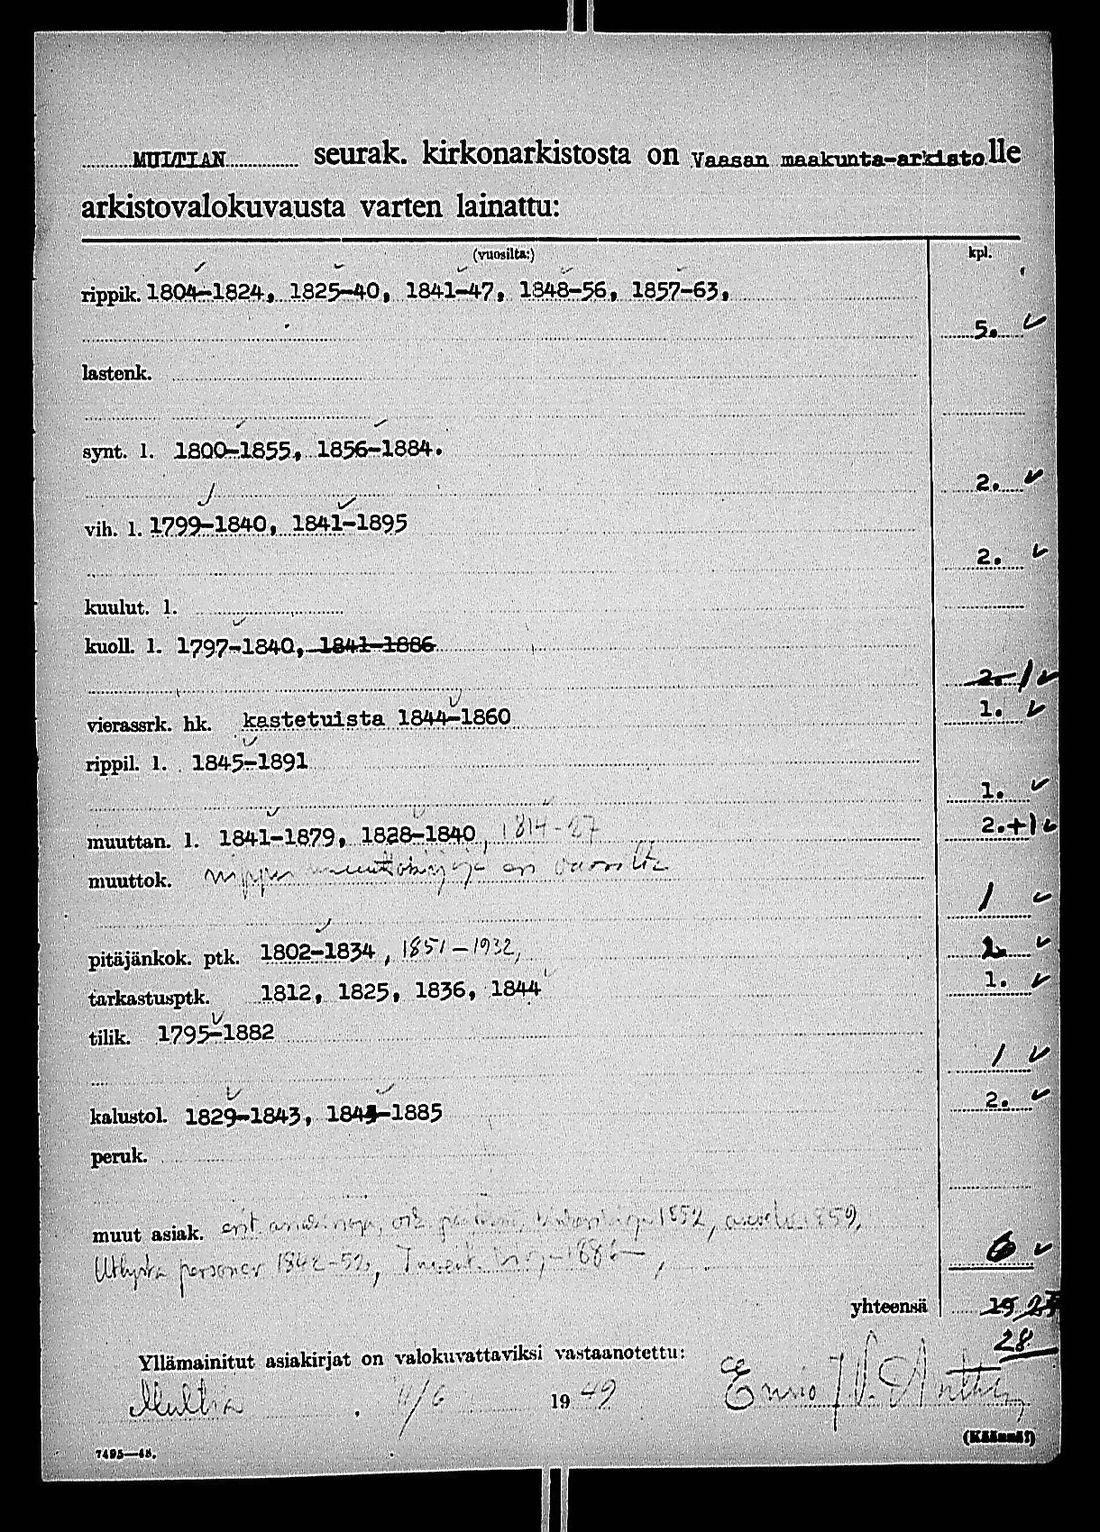 MULTIAN seurak. kirkonarkistosta on Vaasan maakunta-arkisto lle
arkistovalokuvausta varten lainattu:
(vuosilta:) kpl.
rippik. 1804-1824, 1825-40, 1841-47, 1848-56, 1857-63,
5. ✓
lastenk.
synt. l. 1800-1855, 1856-1884.
2. ✓
vih. l. 1799-1840, 1841-1895
2. ✓
kuulut. l.
kuoll. l. 1797-1840, 1841-1886
2. 1 ✓
vierassrk. hk. kastetuista 1844-1860 1. ✓
rippil. l. 1845-1891
1. ✓
muuttan. l. 1841-1879, 1828-1840, 1814-27 2.+1 ✓
muuttok. nippu muuttokirjoja eri vuosilta
1 ✓
pitäjänkok. ptk. 1802-1834, 1851-1932, ✓
tarkastusptk. 1812, 1825, 1836, 1844 1. ✓
tilik. 1795-1882
1 ✓
kalustol. 1829-1843, 1843-1885 2. ✓
peruk.
muut asiak. 1852, 1859,
personer 1842-52, 6 ✓
yhteensä 19
28
Yllämainitut asiakirjat on valokuvattaviksi vastaanotettu:
Multia 4/6 1949
(Käännä!)
7495—48.